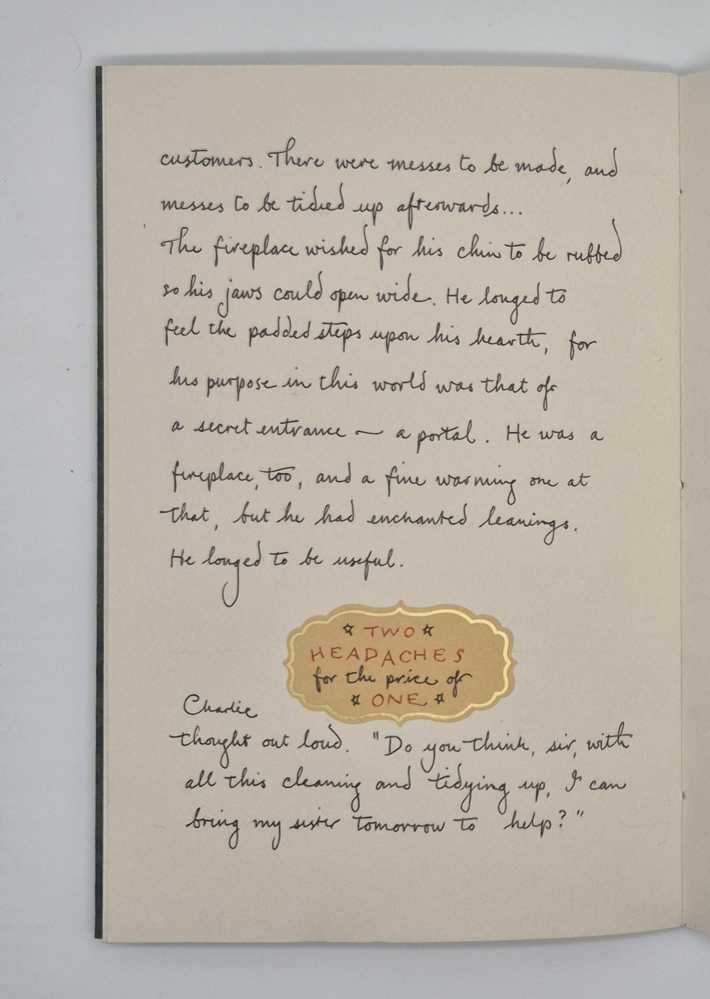 customers. There were messes to be made, and
messes to be tidied up afterwards...
The fireplace wished for his chin to be rubbed
so his jaws could open wide. He longed to
feel the padded steps upon his hearth, for
his purpose in this world was that of
a secret entrance ~ a portal. He was a
fireplace, too, and a fine warming one at
that, but he had enchanted leanings.
He longed to be useful.
☆ TWO ☆
HEADACHES
for the price of
☆ ONE ☆
Charlie
thought out loud. "Do you think, sir, with
all this cleaning and tidying up, I can
bring my sister tomorrow to help?"